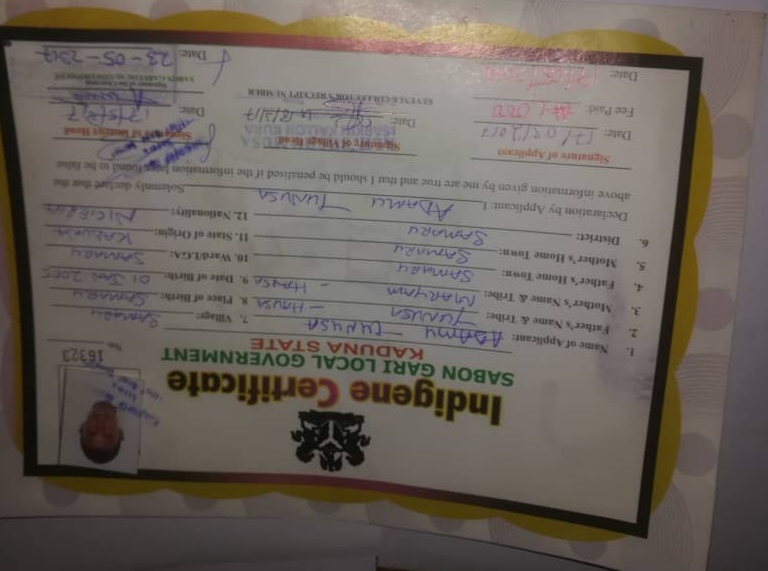 Indigene Certificate
SABON GARI LOCAL GOVERNMENT
KADUNA STATE
No. 16323
1. Name of Applicant: ADAMU TUNUSA
2. Father's Name & Tribe: TUNUSA - HAUSA
3. Mother's Name & Tribe: MARYAM - HAUSA
4. Father's Home Town: SAMARU
5. Mother's Home Town: SAMARU
6. District: SAMARU
7. Village: SAMARU
8. Place of Birth: SAMARU
9. Date of Birth: 01 JAN 2005
10. Ward/LGA: SAMARU
11. State of Origin: KADUNA
12. Nationality: NIGERIA
Declaration by Applicant: I ADAMU TUNUSA Solemnly declare that the
above information given by me are true and that I should be penalised if the information later found to be false
Signature of Applicant
Date: 17/05/2017
Fee Paid:
Date:
Signature of Village Head
Date:
REVENUE COLLECTOR'S RECEIPT NUMBER
Signature of District Head
Date: 17/5/17
Date: 23-05-2017